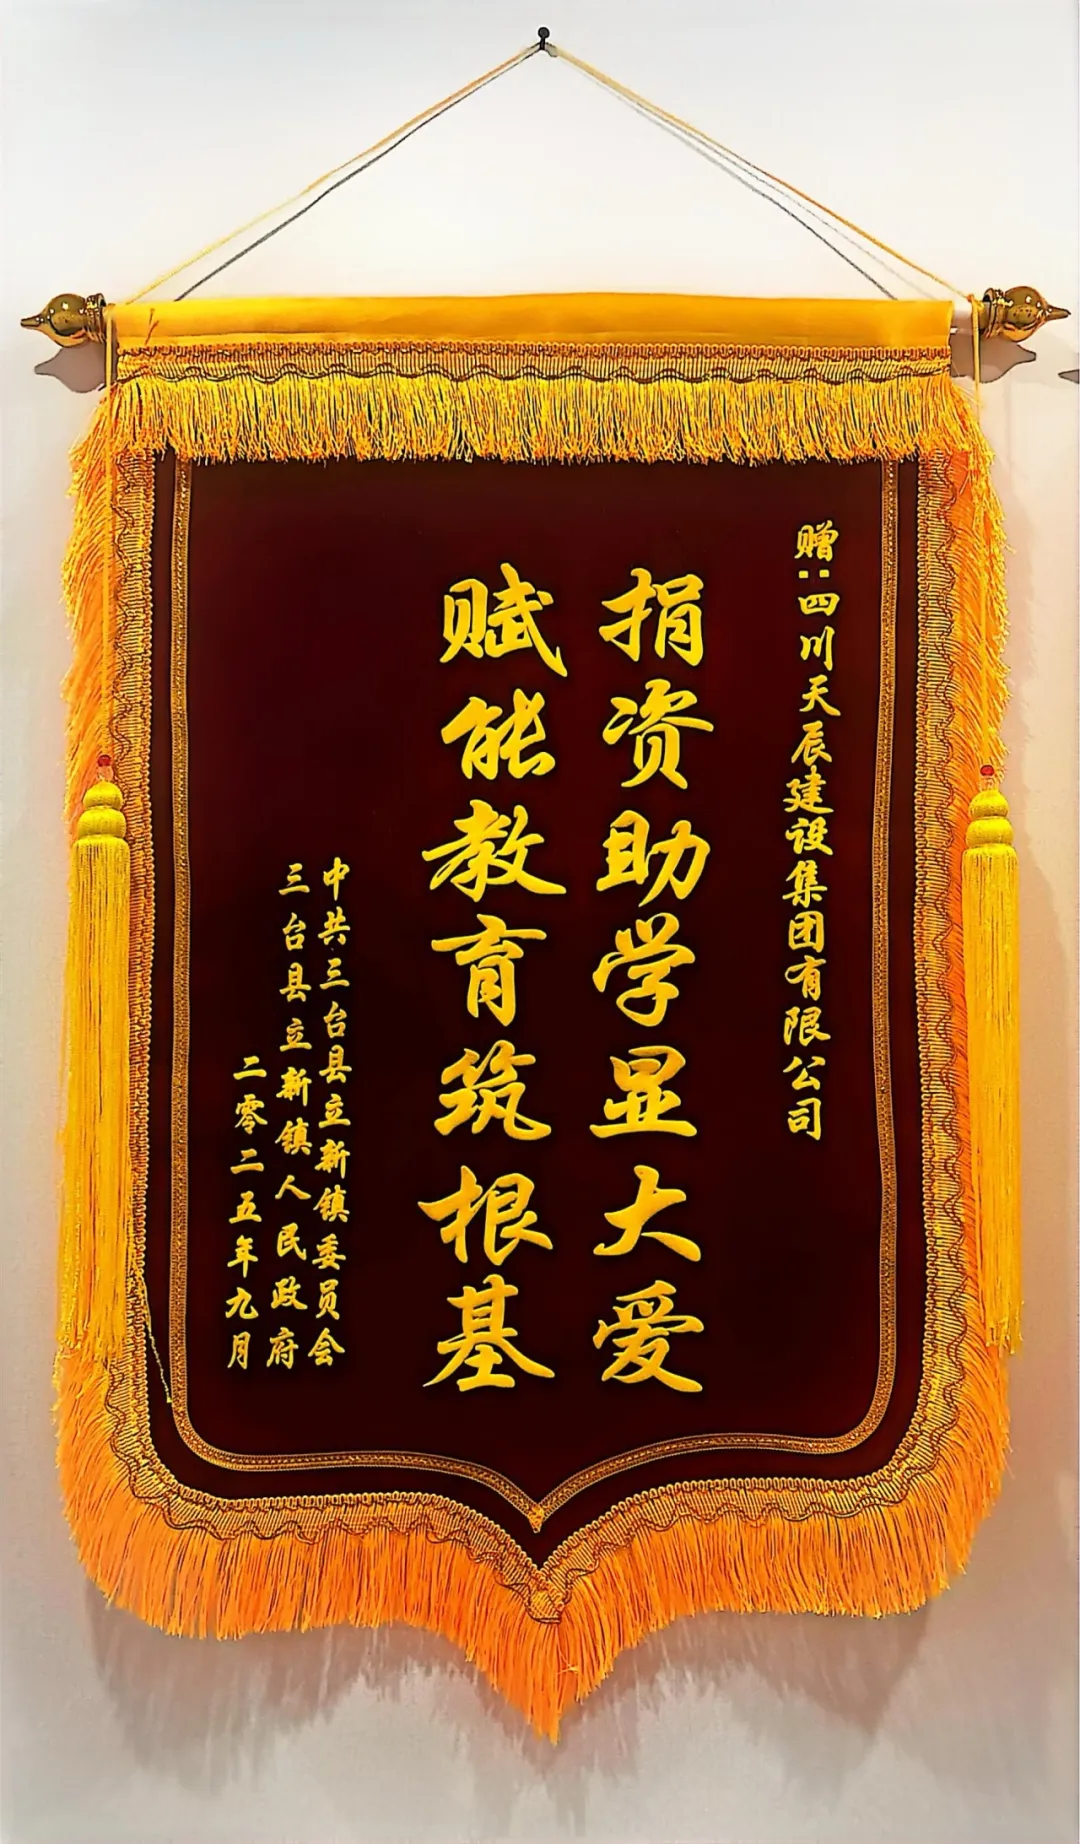 赠:四川天辰建设集团有限公司
捐资助学显大爱
赋能教育筑根基
中共三台县立新镇委员会
三台县立新镇人民政府
二零二五年九月